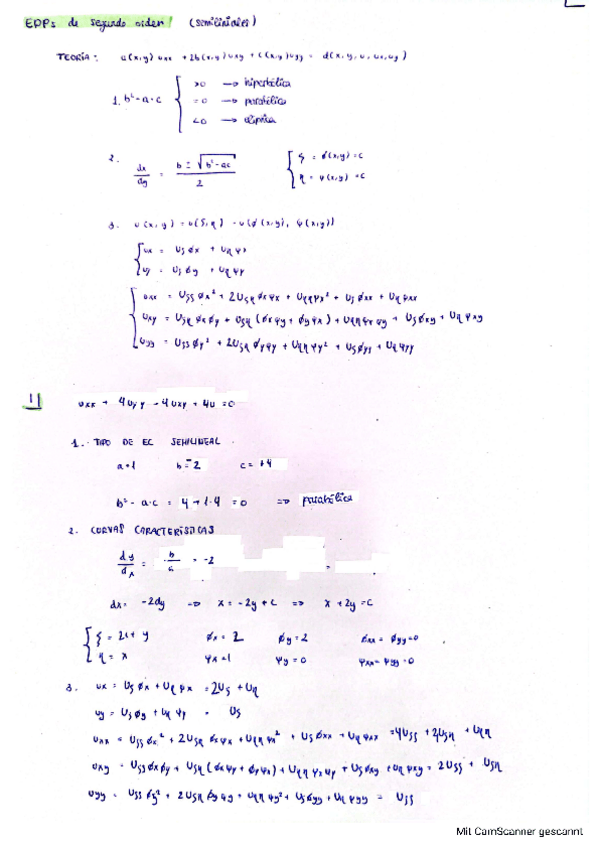 EDPs de segundo orden (semilineales)
TEORÍA: a(x,y) uxx + 2b(x,y) uxy + c(x,y) uyy = d(x,y,u,ux,uy)
1. b² - a·c { >0 → hiperbólica
=0 → parabólica
<0 → elíptica
2. dx/dy = b ± √(b²-ac) / 2 { ξ = φ(x,y) = c
η = ψ(x,y) = c
3. u(x,y) = u(ξ,η) = u(φ(x,y), ψ(x,y))
{ ux = uξ φx + uη ψx
uy = uξ φy + uη ψy
{ uxx = uξξ φx² + 2uξη φxψx + uηη ψx² + uξ φxx + uη ψxx
uxy = uξξ φxφy + uξη (φxψy + φyψx) + uηη ψxψy + uξ φxy + uη ψxy
uyy = uξξ φy² + 2uξη φyψy + uηη ψy² + uξ φyy + uη ψyy
1| uxx + 4uyy - 4uxy + 4u = 0
1. TIPO DE EC SEMILINEAL
a=1 b=-2 c=+4
b² - a·c = 4+1·4 = 0 => parabólica
2. CURVAS CARACTERÍSTICAS
dy/dx = b/a = -2 =
dx = -2dy => x = -2y + c => x + 2y = c
{ ξ = 2x + y φx = 2 φy = 2 φxx = φyy = 0
η = x ψx = 1 ψy = 0 ψxx = ψyy = 0
3. ux = uξ φx + uη ψx = 2uξ + uη
uy = uξ φy + uη ψy = uξ
uxx = uξξ φx² + 2uξη φxψx + uηη ψx² + uξ φxx + uη ψxx = 4uξξ + 2uξη + uηη
uxy = uξξ φxφy + uξη (φxψy + φyψx) + uηη ψxψy + uξ φxy + uη ψxy = 2uξξ + uξη
uyy = uξξ φy² + 2uξη φyψy + uηη ψy² + uξ φyy + uη ψyy = uξξ
Mit CamScanner gescannt